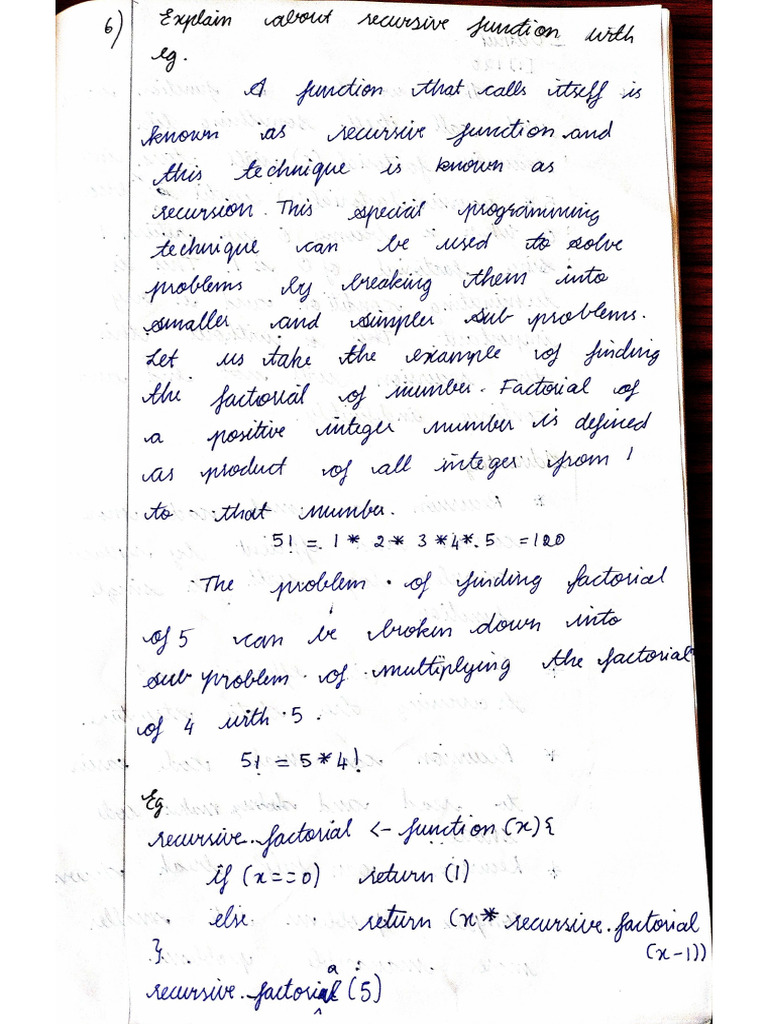 6) Explain about recursive function with
eg.
A function that calls itself is
known as recursive function and
this technique is known as
recursion. This special programming
technique can be used to solve
problems by breaking them into
smaller and simpler sub problems.
Let us take the example of finding
the factorial of number. Factorial of
a positive integer number is defined
as product of all integer from 1
to that number.
5! = 1 * 2 * 3 * 4 * 5 = 120
The problem of finding factorial
of 5 can be broken down into
sub problem of multiplying the factorial
of 4 with 5.
5! = 5 * 4!
Eg
recursive.factorial <- function(x){
if (x==0) return(1)
else return (x * recursive.factorial
(x-1))
}.
recursive.factorial(5)